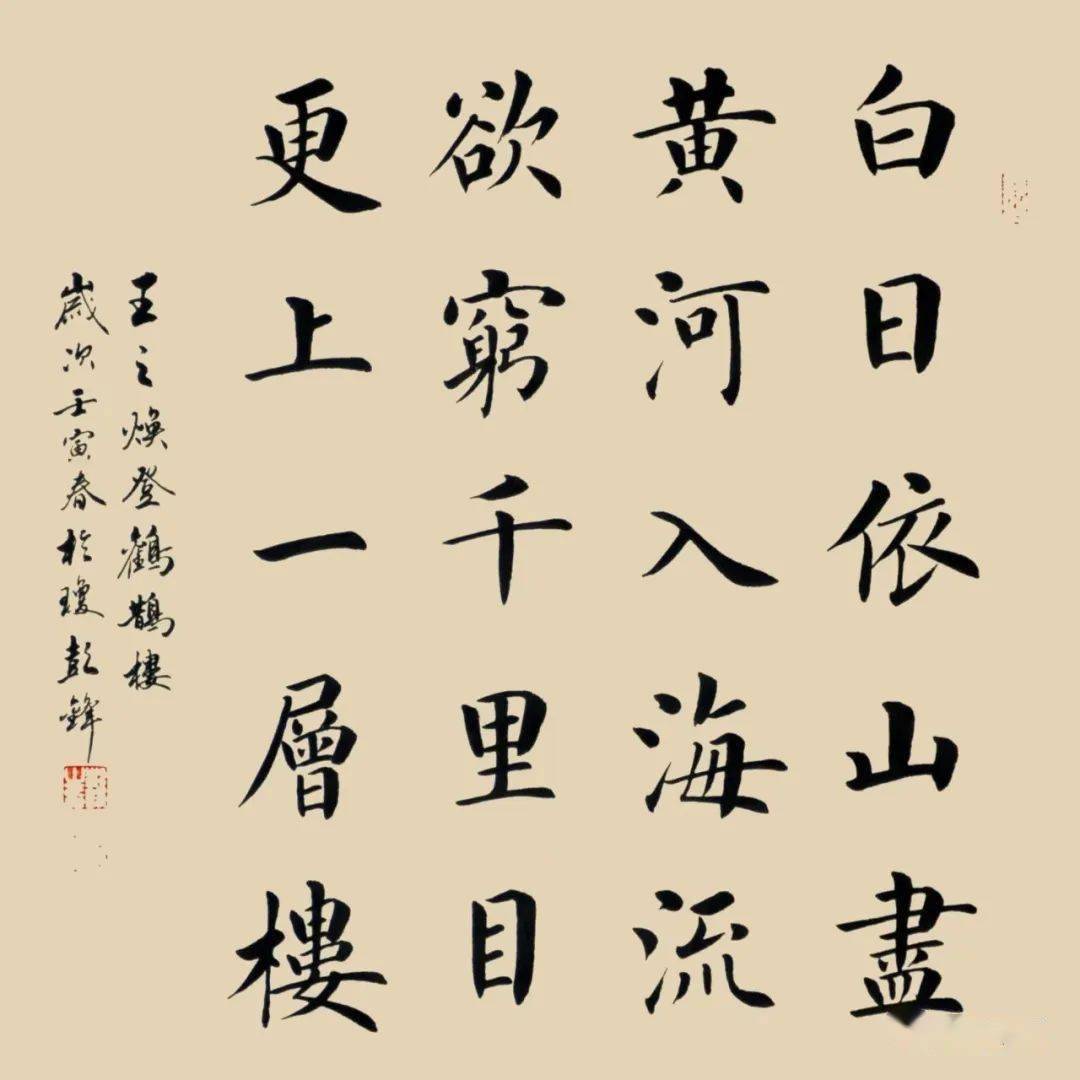 白日依山盡
黃河入海流
欲窮千里目
更上一層樓
王之煥登鸛鵲樓
歲次壬寅春於瓊彭鋒